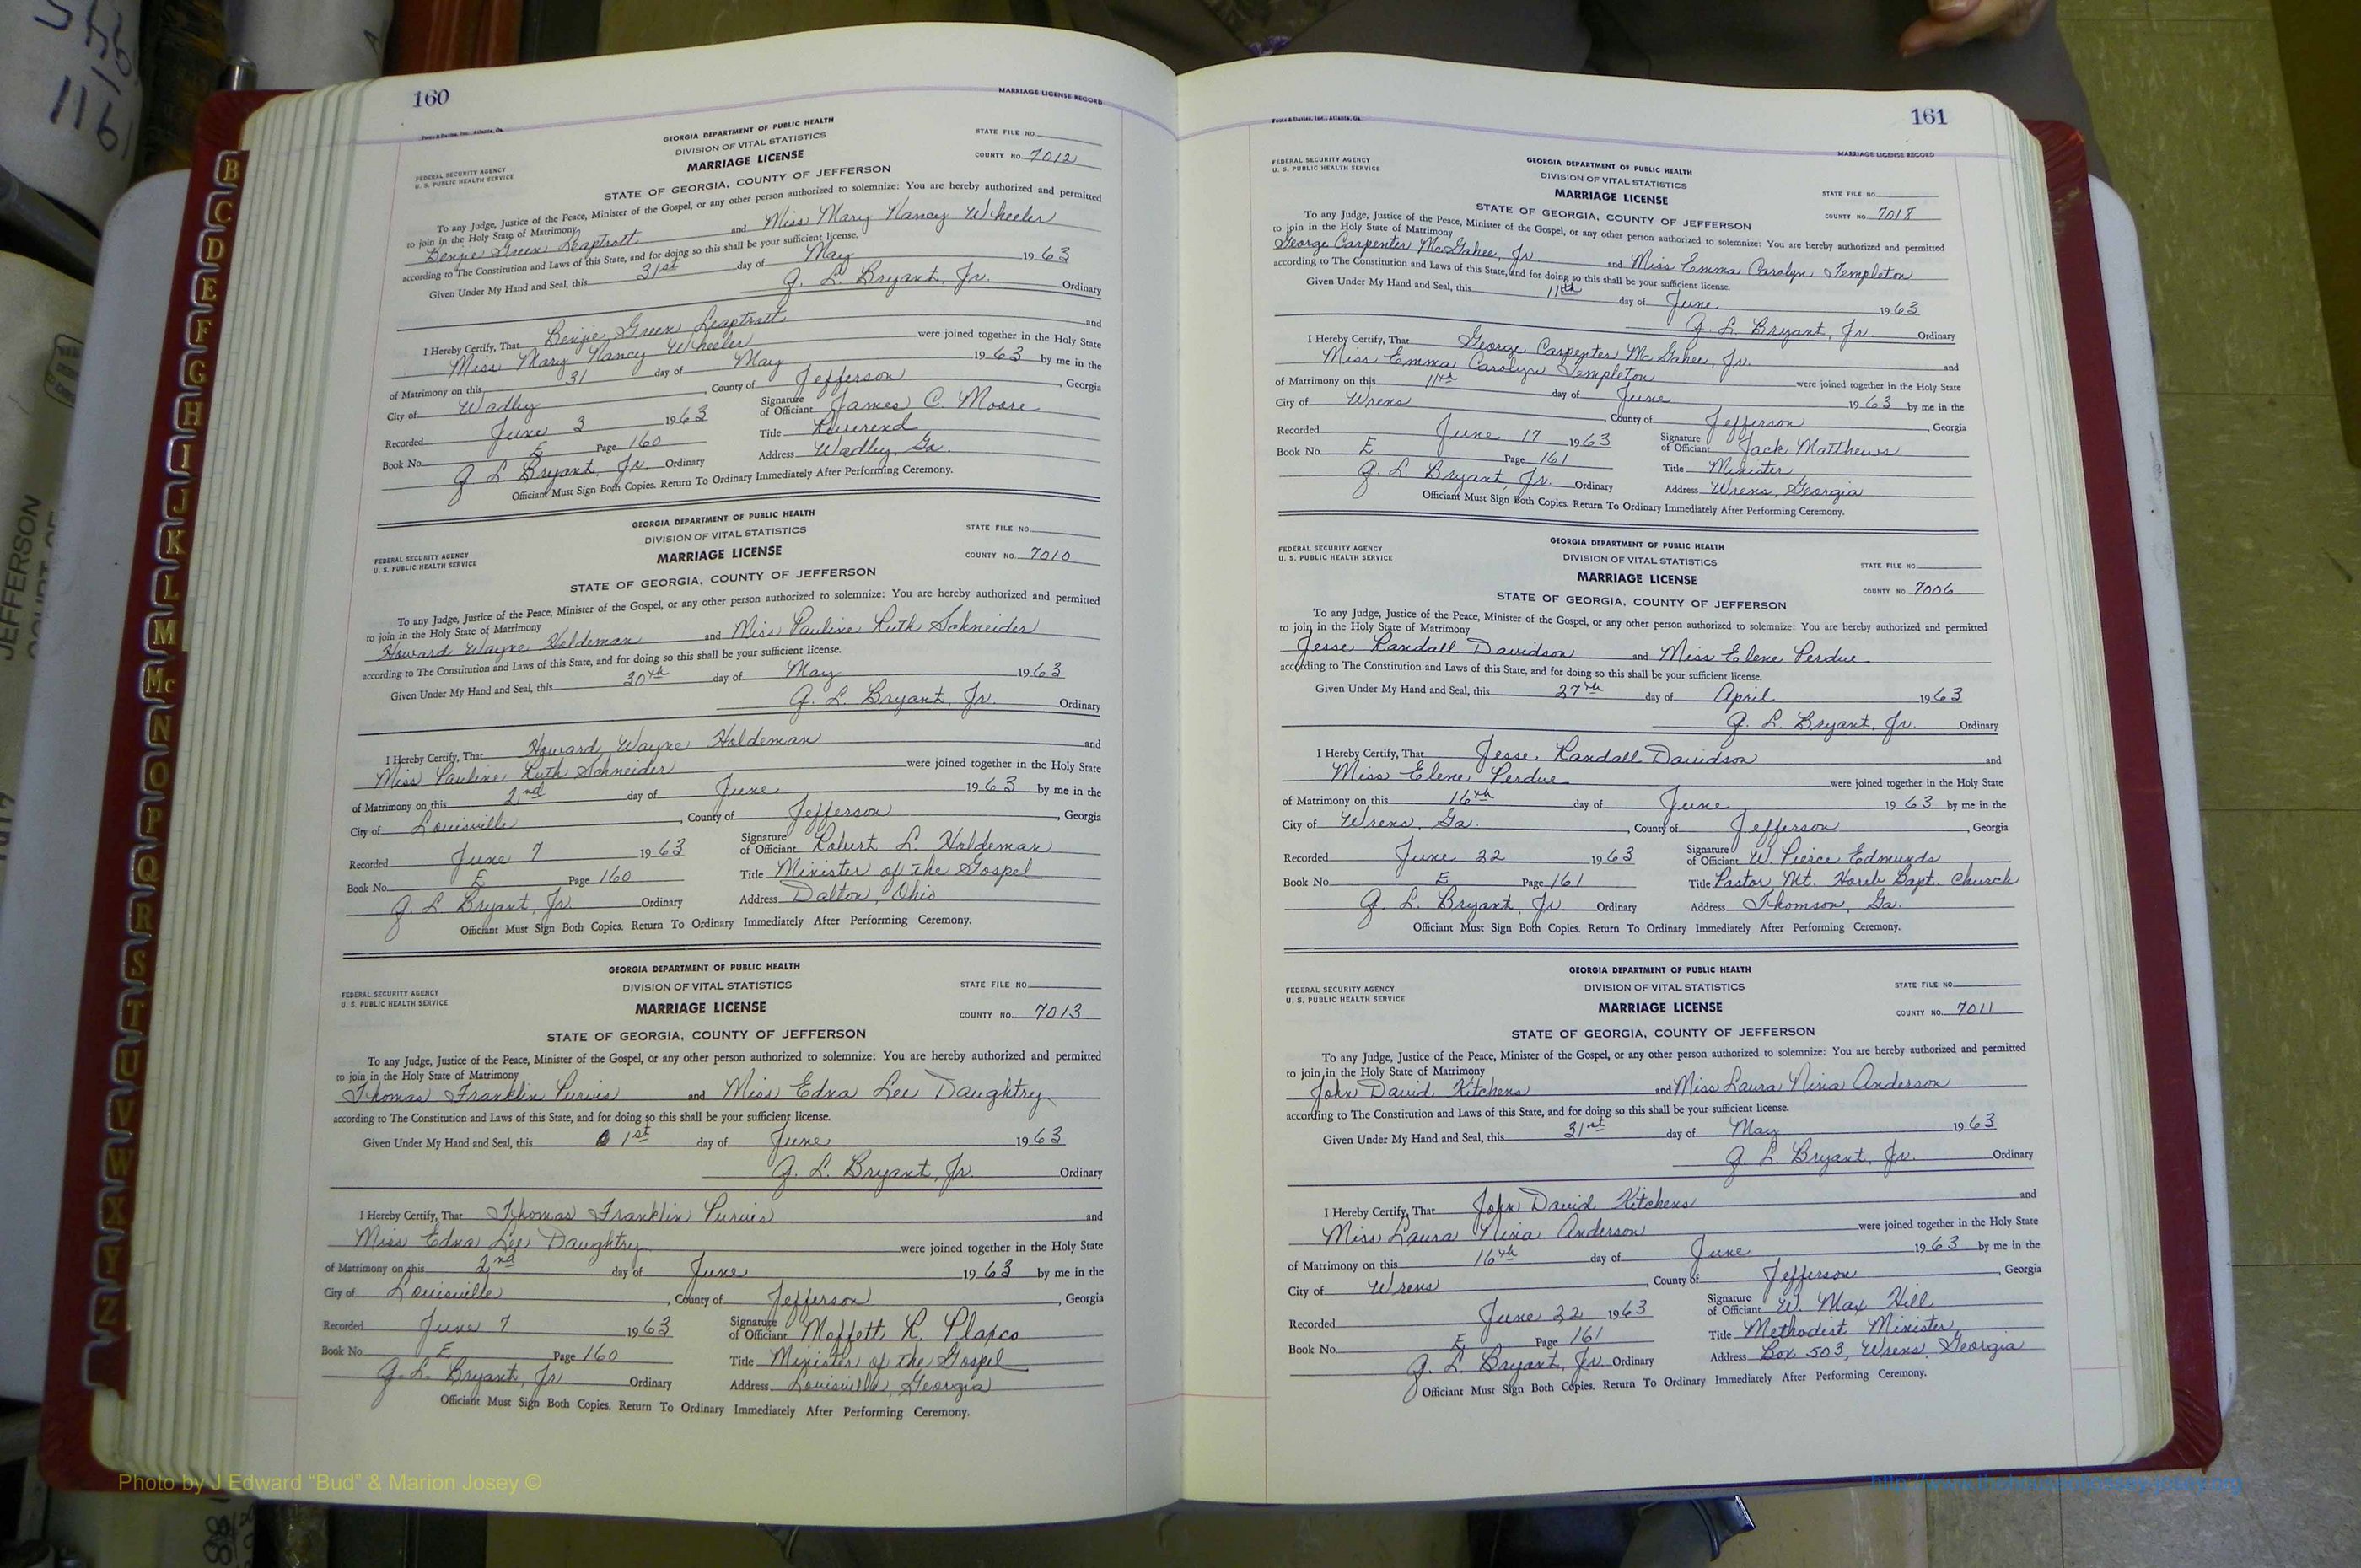 160
MARRIAGE LICENSE RECORD
Foote & Davies, Inc., Atlanta, Ga.
GEORGIA DEPARTMENT OF PUBLIC HEALTH
DIVISION OF VITAL STATISTICS
MARRIAGE LICENSE
STATE OF GEORGIA, COUNTY OF JEFFERSON
FEDERAL SECURITY AGENCY
U. S. PUBLIC HEALTH SERVICE
STATE FILE NO.
COUNTY NO. 7012
To any Judge, Justice of the Peace, Minister of the Gospel, or any other person authorized to solemnize: You are hereby authorized and permitted
to join in the Holy State of Matrimony
Benjie Green Leaptrott and Miss Mary Nancy Wheeler
according to The Constitution and Laws of this State, and for doing so this shall be your sufficient license.
Given Under My Hand and Seal, this 31st day of May 1963
G. L. Bryant, Jr. Ordinary
I Hereby Certify, That Benjie Green Leaptrott and
Miss Mary Nancy Wheeler were joined together in the Holy State
of Matrimony on this 31 day of May 1963 by me in the
City of Wadley, County of Jefferson, Georgia
Recorded June 3 1963 Signature of Officiant James C. Moore
Book No. E Page 160 Title Reverend
G L Bryant, Jr. Ordinary Address Wadley, Ga.
Officiant Must Sign Both Copies. Return To Ordinary Immediately After Performing Ceremony.
GEORGIA DEPARTMENT OF PUBLIC HEALTH
DIVISION OF VITAL STATISTICS
MARRIAGE LICENSE
STATE OF GEORGIA, COUNTY OF JEFFERSON
FEDERAL SECURITY AGENCY
U. S. PUBLIC HEALTH SERVICE
STATE FILE NO.
COUNTY NO. 7010
To any Judge, Justice of the Peace, Minister of the Gospel, or any other person authorized to solemnize: You are hereby authorized and permitted
to join in the Holy State of Matrimony
Howard Wayne Holdeman and Miss Pauline Ruth Schneider
according to The Constitution and Laws of this State, and for doing so this shall be your sufficient license.
Given Under My Hand and Seal, this 30th day of May 1963
G. L. Bryant, Jr. Ordinary
I Hereby Certify, That Howard Wayne Holdeman and
Miss Pauline Ruth Schneider were joined together in the Holy State
of Matrimony on this 2nd day of June 1963 by me in the
City of Louisville, County of Jefferson, Georgia
Recorded June 7 1963 Signature of Officiant Robert L. Holdeman
Book No. E Page 160 Title Minister of the Gospel
G. L Bryant, Jr. Ordinary Address Dalton, Ohio
Officiant Must Sign Both Copies. Return To Ordinary Immediately After Performing Ceremony.
GEORGIA DEPARTMENT OF PUBLIC HEALTH
DIVISION OF VITAL STATISTICS
MARRIAGE LICENSE
STATE OF GEORGIA, COUNTY OF JEFFERSON
FEDERAL SECURITY AGENCY
U. S. PUBLIC HEALTH SERVICE
STATE FILE NO.
COUNTY NO. 7013
To any Judge, Justice of the Peace, Minister of the Gospel, or any other person authorized to solemnize: You are hereby authorized and permitted
to join in the Holy State of Matrimony
Thomas Franklin Purvis and Miss Edna Lee Daughtry
according to The Constitution and Laws of this State, and for doing so this shall be your sufficient license.
Given Under My Hand and Seal, this 1st day of June 1963
G. L. Bryant, Jr. Ordinary
I Hereby Certify, That Thomas Franklin Purvis and
Miss Edna Lee Daughtry were joined together in the Holy State
of Matrimony on this 2nd day of June 1963 by me in the
City of Louisville, County of Jefferson, Georgia
Recorded June 7 1963 Signature of Officiant Moffett R. Plaxco
Book No. E Page 160 Title Minister of the Gospel
G. L. Bryant, Jr Ordinary Address Louisville, Georgia
Officiant Must Sign Both Copies. Return To Ordinary Immediately After Performing Ceremony.
161
MARRIAGE LICENSE RECORD
Foote & Davies, Inc., Atlanta, Ga.
GEORGIA DEPARTMENT OF PUBLIC HEALTH
DIVISION OF VITAL STATISTICS
MARRIAGE LICENSE
STATE OF GEORGIA, COUNTY OF JEFFERSON
FEDERAL SECURITY AGENCY
U. S. PUBLIC HEALTH SERVICE
STATE FILE NO.
COUNTY NO. 7018
To any Judge, Justice of the Peace, Minister of the Gospel, or any other person authorized to solemnize: You are hereby authorized and permitted
to join in the Holy State of Matrimony
George Carpenter McGahee, Jr. and Miss Emma Carolyn Templeton
according to The Constitution and Laws of this State, and for doing so this shall be your sufficient license.
Given Under My Hand and Seal, this 11th day of June 1963
G. L. Bryant, Jr. Ordinary
I Hereby Certify, That George Carpenter McGahee, Jr. and
Miss Emma Carolyn Templeton were joined together in the Holy State
of Matrimony on this 11th day of June 1963 by me in the
City of Wrens, County of Jefferson, Georgia
Recorded June 17 1963 Signature of Officiant Jack Matthews
Book No. E Page 161 Title Minister
G. L. Bryant, Jr. Ordinary Address Wrens, Georgia
Officiant Must Sign Both Copies. Return To Ordinary Immediately After Performing Ceremony.
GEORGIA DEPARTMENT OF PUBLIC HEALTH
DIVISION OF VITAL STATISTICS
MARRIAGE LICENSE
STATE OF GEORGIA, COUNTY OF JEFFERSON
FEDERAL SECURITY AGENCY
U. S. PUBLIC HEALTH SERVICE
STATE FILE NO.
COUNTY NO. 7006
To any Judge, Justice of the Peace, Minister of the Gospel, or any other person authorized to solemnize: You are hereby authorized and permitted
to join in the Holy State of Matrimony
Jesse Randall Davidson and Miss Elene Perdue
according to The Constitution and Laws of this State, and for doing so this shall be your sufficient license.
Given Under My Hand and Seal, this 27th day of April 1963
G. L. Bryant, Jr. Ordinary
I Hereby Certify, That Jesse Randall Davidson and
Miss Elene Perdue were joined together in the Holy State
of Matrimony on this 16th day of June 1963 by me in the
City of Wrens, Ga., County of Jefferson, Georgia
Recorded June 22 1963 Signature of Officiant W. Pierce Edmunds
Book No. E Page 161 Title Pastor Mt. Horeb Bapt. Church
G. L. Bryant, Jr. Ordinary Address Thomson, Ga.
Officiant Must Sign Both Copies. Return To Ordinary Immediately After Performing Ceremony.
GEORGIA DEPARTMENT OF PUBLIC HEALTH
DIVISION OF VITAL STATISTICS
MARRIAGE LICENSE
STATE OF GEORGIA, COUNTY OF JEFFERSON
FEDERAL SECURITY AGENCY
U. S. PUBLIC HEALTH SERVICE
STATE FILE NO.
COUNTY NO. 7011
To any Judge, Justice of the Peace, Minister of the Gospel, or any other person authorized to solemnize: You are hereby authorized and permitted
to join in the Holy State of Matrimony
John David Kitchens and Miss Laura Nina Anderson
according to The Constitution and Laws of this State, and for doing so this shall be your sufficient license.
Given Under My Hand and Seal, this 31st day of May 1963
G L. Bryant, Jr. Ordinary
I Hereby Certify, That John David Kitchens and
Miss Laura Nina Anderson were joined together in the Holy State
of Matrimony on this 16th day of June 1963 by me in the
City of Wrens, County of Jefferson, Georgia
Recorded June 22 1963 Signature of Officiant W. Max Hill
Book No. E Page 161 Title Methodist Minister
G. L Bryant, Jr Ordinary Address Box 503, Wrens, Georgia
Officiant Must Sign Both Copies. Return To Ordinary Immediately After Performing Ceremony.
B
C
D
E
F
G
H
I
J
K
L
M
Mc
N
O
P
Q
R
S
T
U
V
W
X
Y
Z
JEFFERSON
Photo by J Edward “Bud” & Marion Josey ©